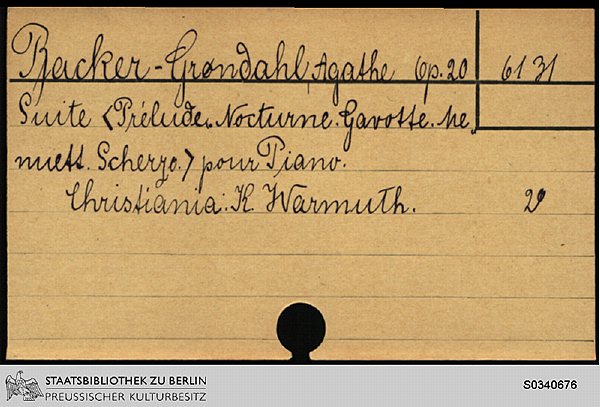 Backer-Grøndahl, Agathe Op. 20 6131
Suite <Prélude. Nocturne. Gavotte. Me„
nuett. Scherzo.> pour Piano.
Christiania: K. Warmuth. 2°
STAATSBIBLIOTHEK ZU BERLIN
PREUSSISCHER KULTURBESITZ
S0340676